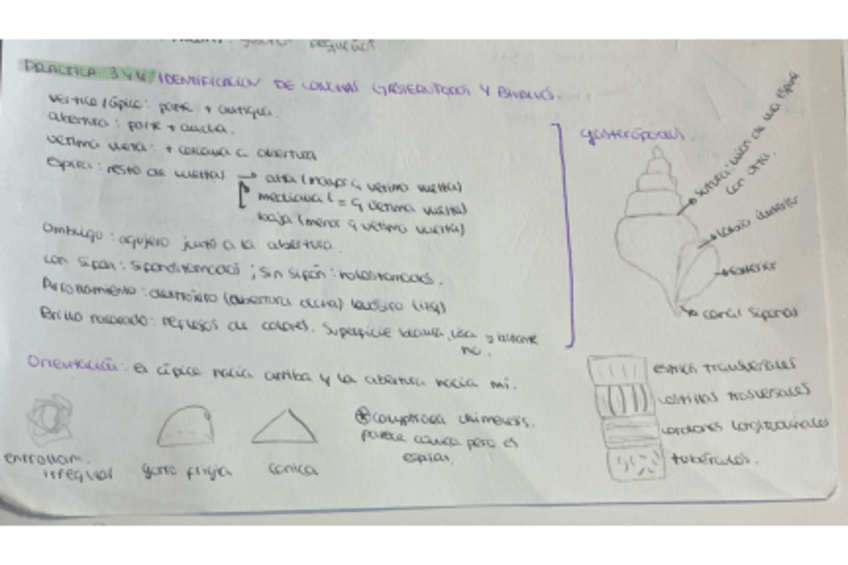 PRACTICA 3 y 4 / IDENTIFICACIÓN DE CONCHAS GASTERÓPODOS Y BIVALVOS.
vertice/ápice: parte + antigua.
abertura: parte + ancha.
ultima vuelta: + cercana a abertura
espira: resto de vueltas → alta (mayor q última vuelta)
mediana (= q última vuelta)
baja (menor q última vuelta)
Ombligo: agujero junto a la abertura.
con sifón: sifonostomados; sin sifón: holostomados.
Arrollamiento: dextrógiro (abertura dcha) levógiro (izq)
Brillo nacarado: reflejos de colores. Superficie blanca, lisa y brillante
no.
Orientación: el ápice hacia arriba y la abertura hacia mi.
enrollam.
irregular
gorro frigia
conica
calyptraea chinensis.
parece cónica pero es
espiral.
gasterópodos.
sutura: unión de una espira
con otra.
labio interior
exterior
canal sifonal
estrias transversales
costillas trasversales
cordones longitudinales
tubérculos.